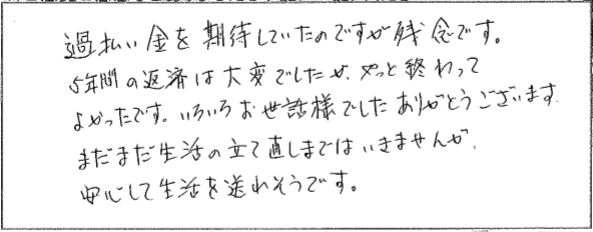 過払い金を期待していたのですが残念です。
5年間の返済は大変でしたが、やっと終わって
よかったです。いろいろお世話様でしたありがとうございます
まだまだ生活の立て直しまではいきませんが、
安心して生活を送れそうです。